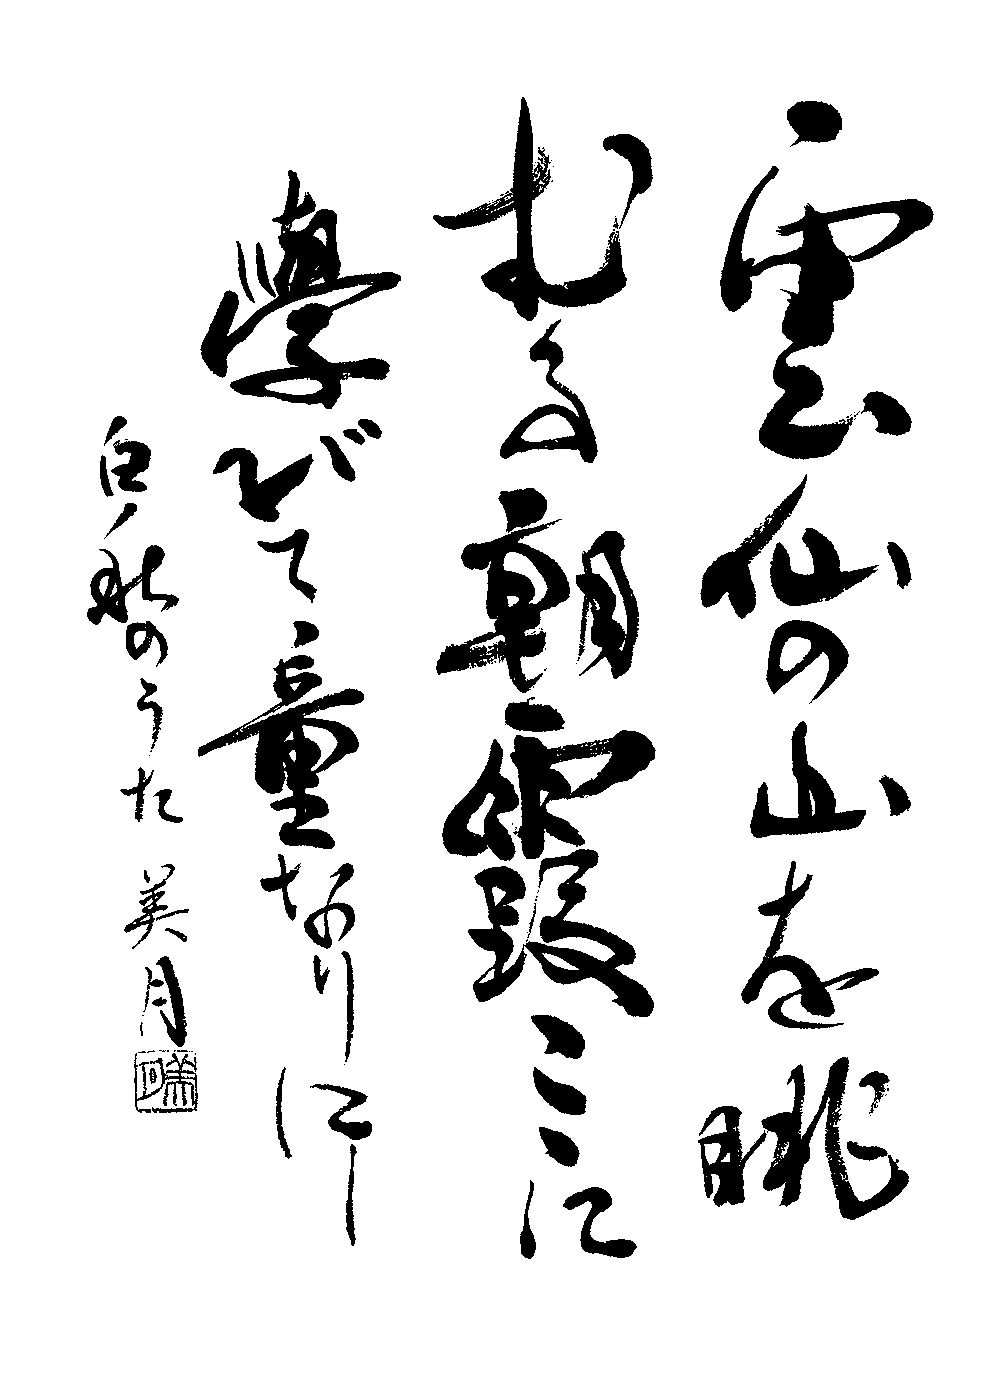 雲仙の山を眺
むる朝霞こゝに
學びて童なりにし
白秋のうた 美月